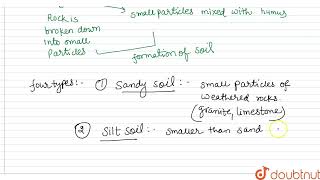 Rock is
broken down
into small
Particles
small particles mixed with humus
formation of soil
four types:- ① Sandy soil :- small particles of
weathered rocks.
(granite, limestone)
② Silt soil :- smaller than sand
doubtnut